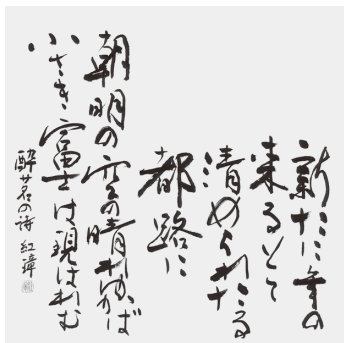 新たに年の
来るとて
清められたる
都路に
朝明の空の晴れゆかば
小さき富士は現はれむ
酔茗の詩 紅瑋